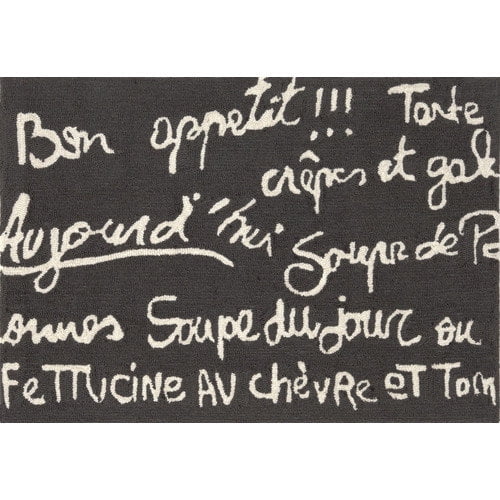 Bon appetit!!! Tarte
crêpes et gal
Aujourd'hui Soupe de Po
onnes Soupe du jour ou
FeTTUCINE AU chèvRe eT Tom